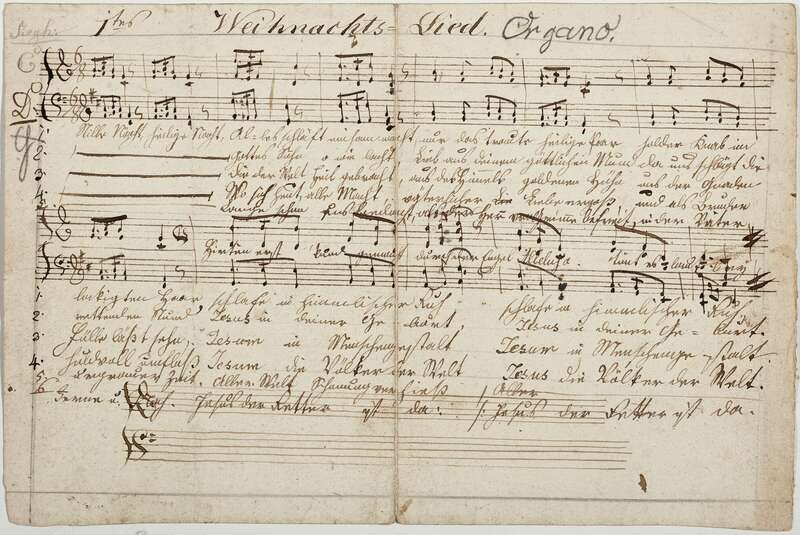 1tes Weihnachts=Lied. Organo.
1. Stille Nacht, heilige Nacht, Al=les schläft einsam wacht nur das traute heilige Paar holder Knab im
2. Gottes Sohn o wie lacht, Lieb aus deinem göttlichen Mund da uns schlägt die
3. Die der Welt Heil gebracht, aus des Himmels goldenen Höhn uns der Gnaden
4. Wo sich heut alle Macht und als Bruder
Lange schon in der Väter
Hirten erst kund gemacht durch der Engel Aleluja. Tönt es laut
1. lockigten Haar, schlafe in himmlischer Ruh, schlafe in himmlischer Ruh,
2. rettende Stund, Jesus in deiner Ge-burt, Jesus in deiner Ge-burt.
3. Fülle läßt sehn, Jesum in Menschengestalt Jesum in Menschenge-stalt
4. huldvoll umschloß Jesus die Völker der Welt Jesus die Völker der Welt.
5. Aller Welt Schonung verhieß Aller
6. Ferne u. Nah. Jesus der Retter ist da: /: Jesus der Retter ist da.